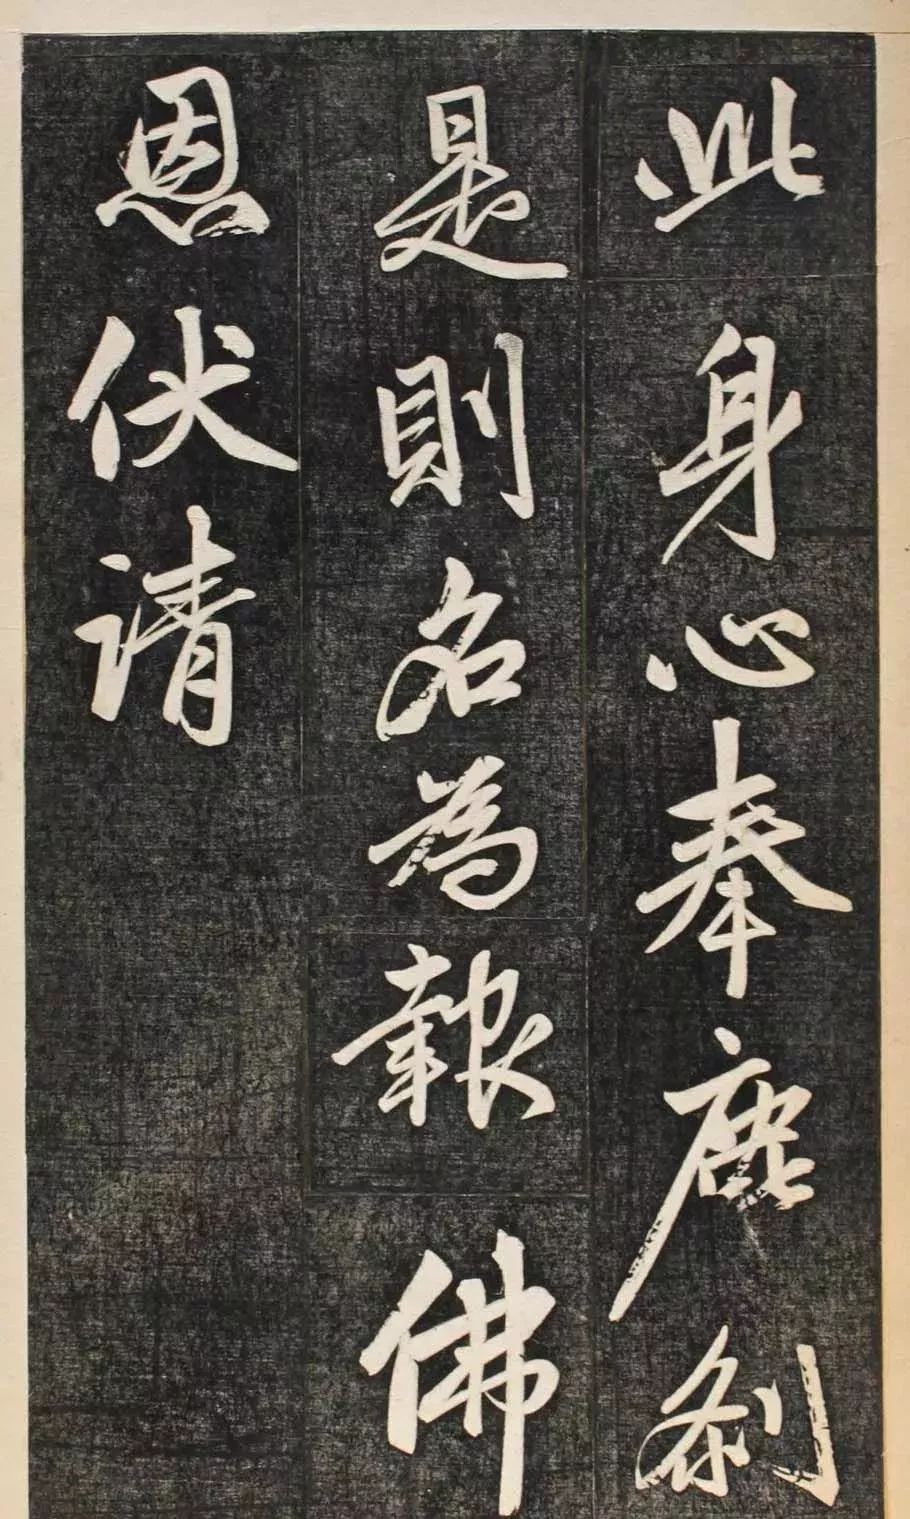 此身心奉塵剎
是則名為報佛
恩伏請